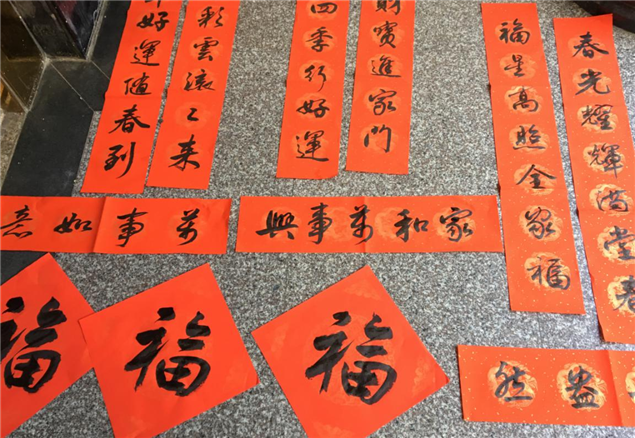 好運值春到
彩雲滚〻来
四季行好運
財寶進家門
福星高照全家福
春光耀輝满堂春
萬事如意
家和萬事興
福
福
福
盎然